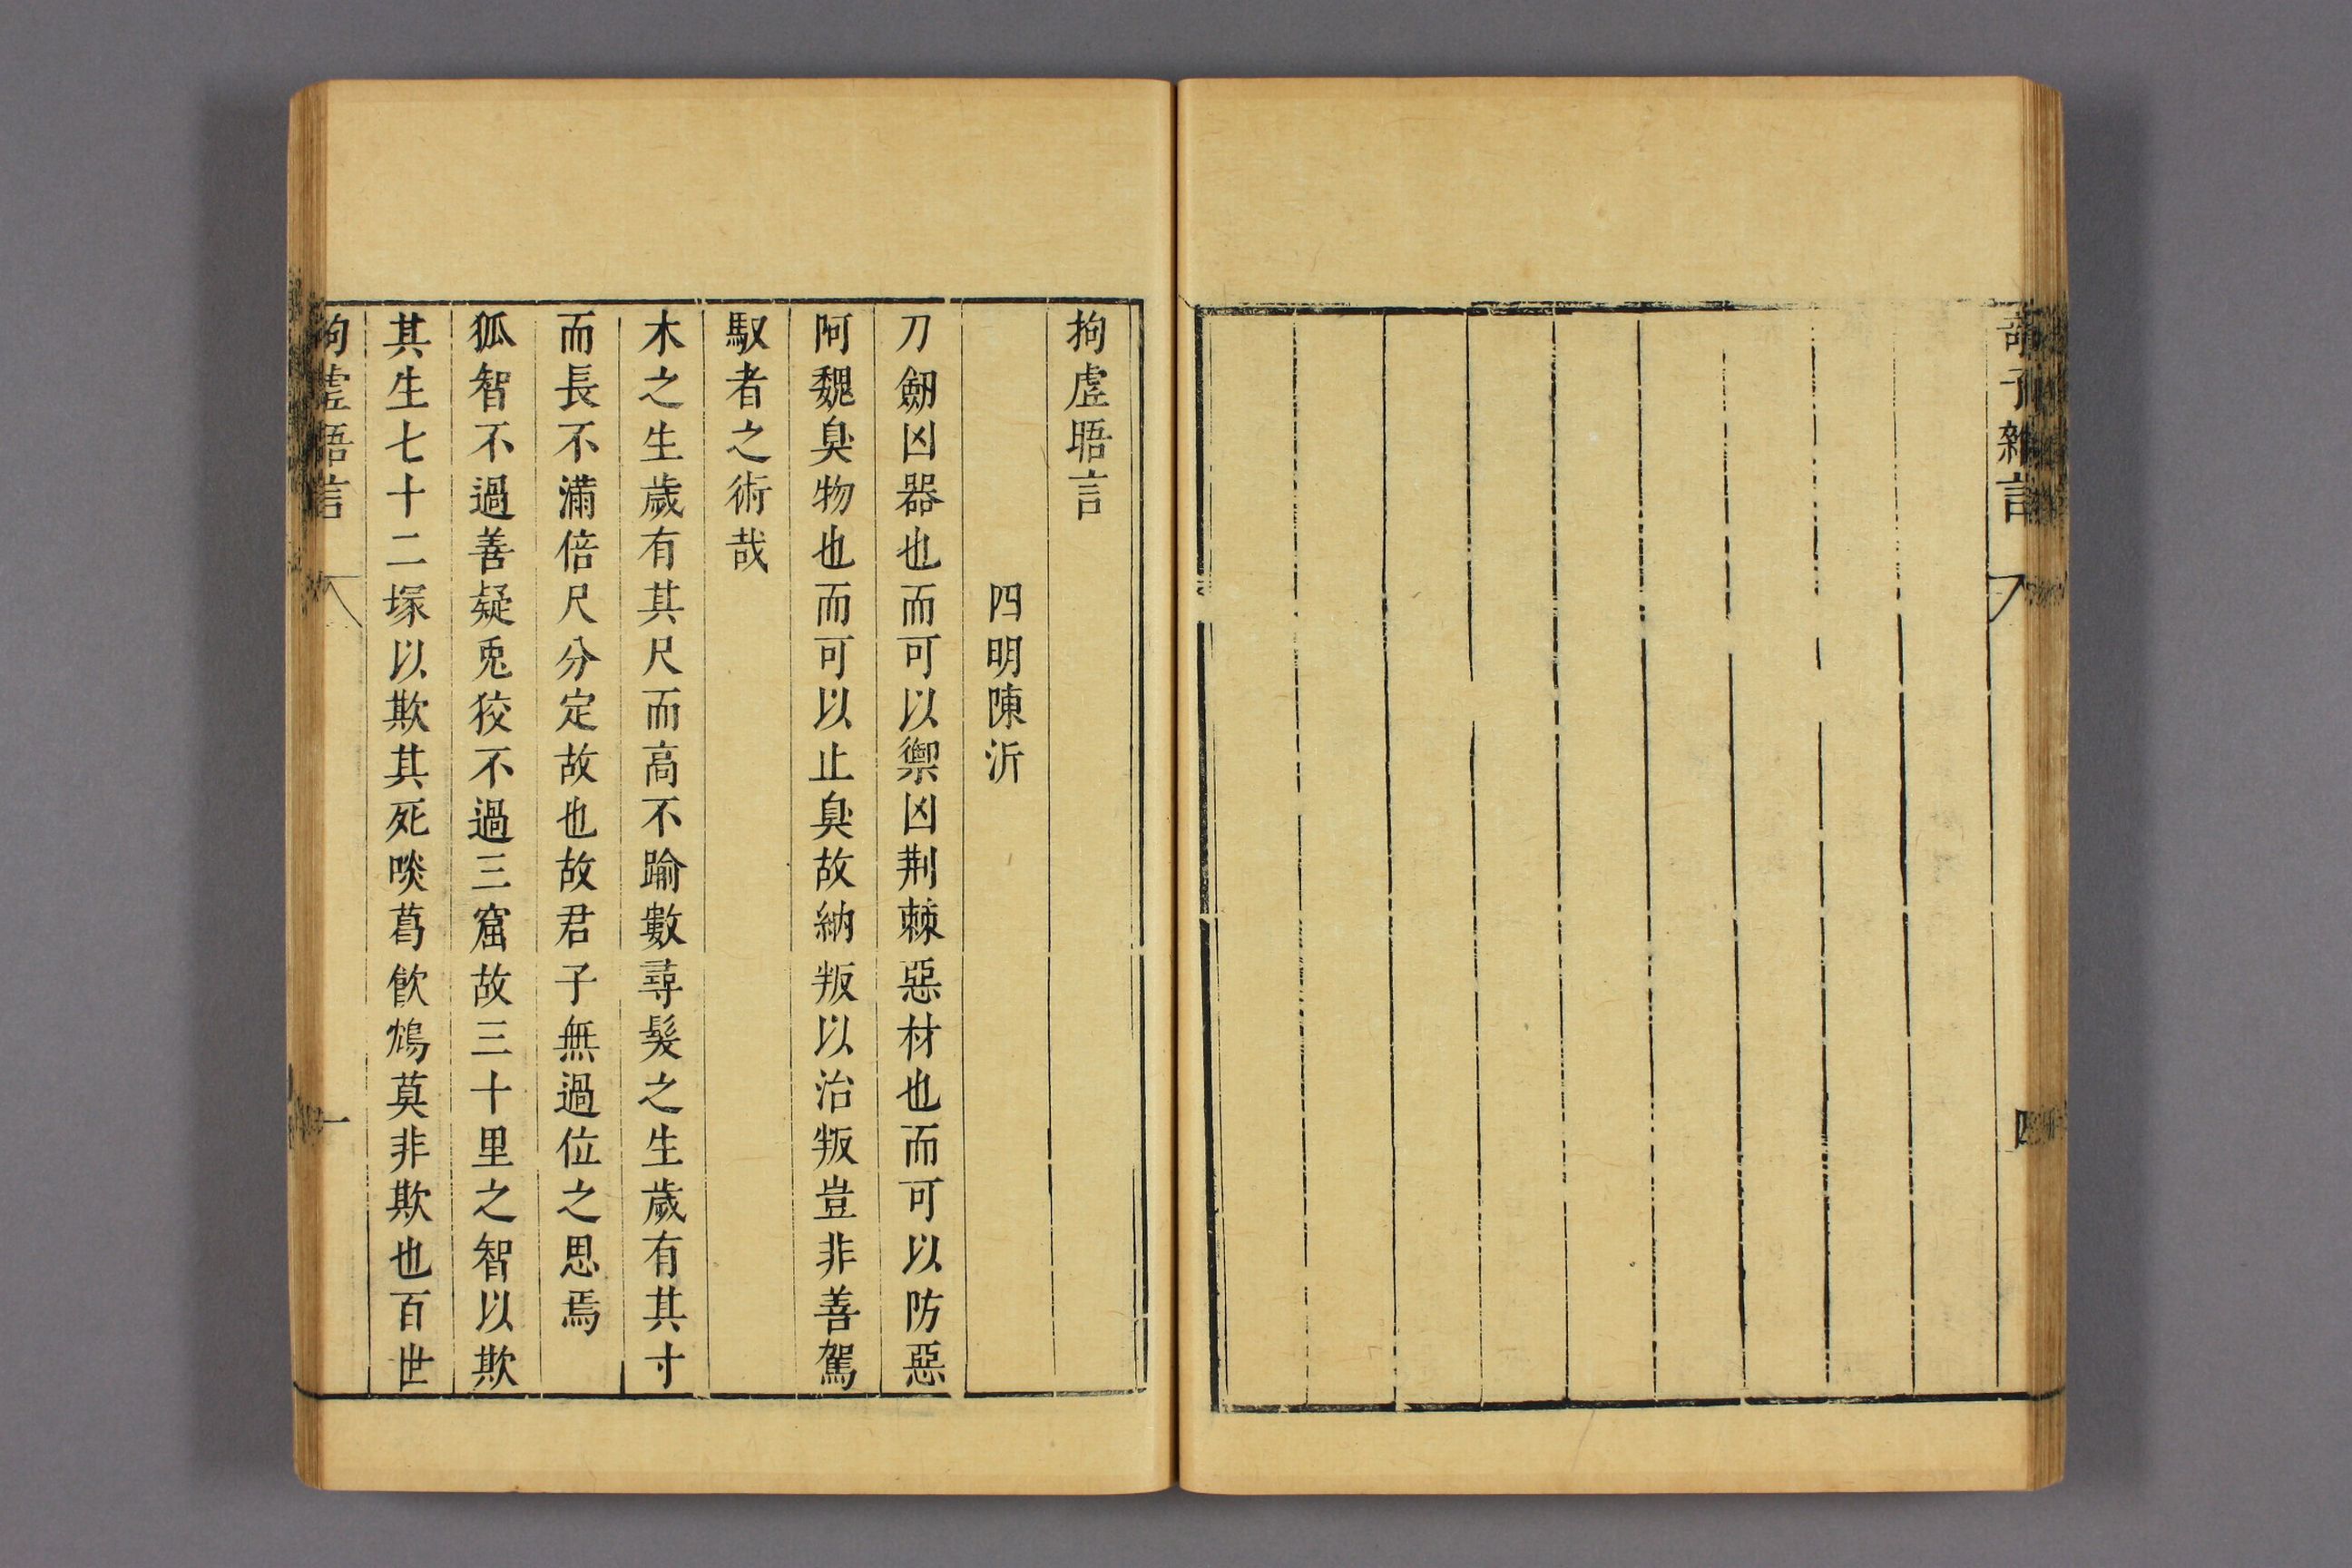 子雜言
四
拘虗晤言
四明陳沂
刀劒凶器也而可以禦凶荆棘惡材也而可以防惡
阿魏臭物也而可以止臭故納叛以治叛豈非善駕
馭者之術哉
木之生歲有其尺而高不踰數尋髮之生歲有其寸
而長不滿倍尺分定故也故君子無過位之思焉
狐智不過善疑兎狡不過三窟故三十里之智以欺
其生七十二塚以欺其死啖葛飮鴆莫非欺也百世
拘虗晤言
一